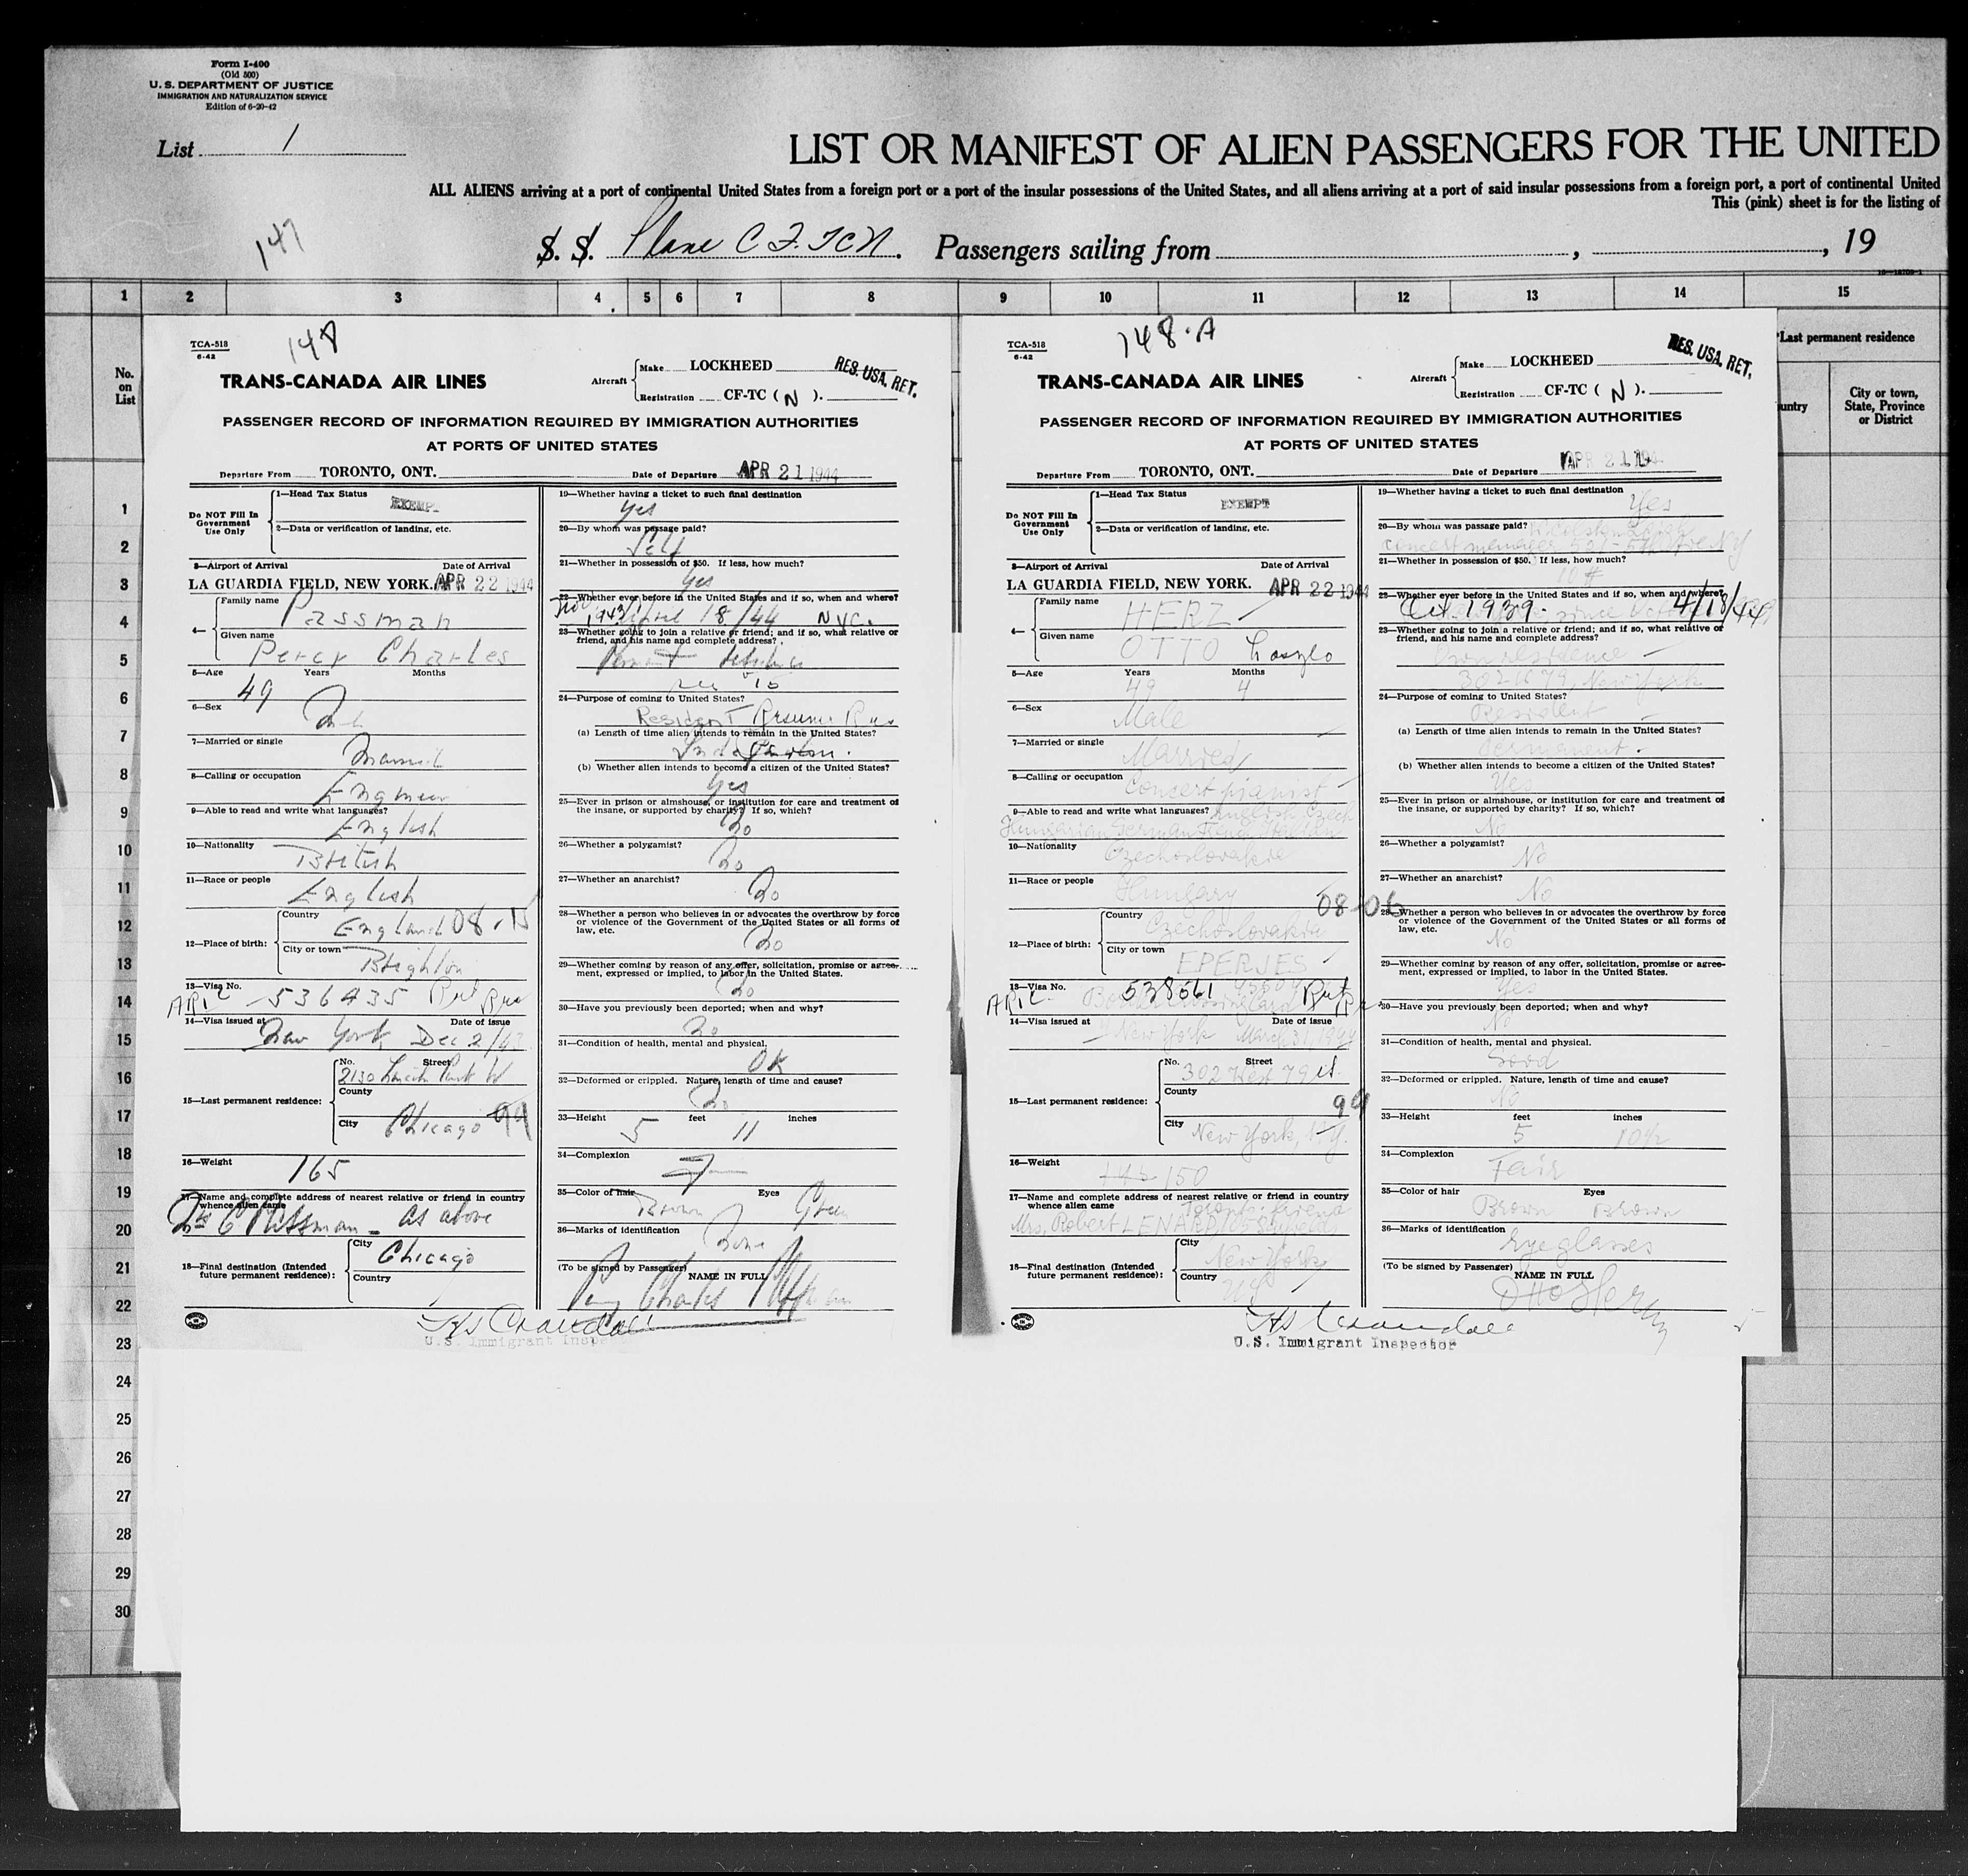 Form I-400
(Old 500)
U. S. DEPARTMENT OF JUSTICE
IMMIGRATION AND NATURALIZATION SERVICE
Edition of 6-20-42
List 1
LIST OR MANIFEST OF ALIEN PASSENGERS FOR THE UNITED
ALL ALIENS arriving at a port of continental United States from a foreign port or a port of the insular possessions of the United States, and all aliens arriving at a port of said insular possessions from a foreign port, a port of continental United
This (pink) sheet is for the listing of
147
S. S. Plane C F. TCN. Passengers sailing from , , 19
1 2 3 4 5 6 7 8 9 10 11 12 13 14 15
No. on List
Last permanent residence
untry
City or town, State, Province or District
1
2
3
4
5
6
7
8
9
10
11
12
13
14
15
16
17
18
19
20
21
22
23
24
25
26
27
28
29
30
TCA-518
6-42
148
TRANS-CANADA AIR LINES
Aircraft Make LOCKHEED
Registration CF-TC ( N ).
RES. USA. RET.
PASSENGER RECORD OF INFORMATION REQUIRED BY IMMIGRATION AUTHORITIES
AT PORTS OF UNITED STATES
Departure From TORONTO, ONT. Date of Departure APR 21 1944
Do NOT Fill In Government Use Only
1—Head Tax Status EXEMPT
2—Data or verification of landing, etc.
3—Airport of Arrival Date of Arrival
LA GUARDIA FIELD, NEW YORK. APR 22 1944
4— Family name Passman
Given name Percy Charles
5—Age Years Months
49
6—Sex
7—Married or single
8—Calling or occupation
Engineer
9—Able to read and write what languages?
English
10—Nationality
British
11—Race or people
English
12—Place of birth: Country England 08-15
City or town Brighton
13—Visa No.
536435
14—Visa issued at Date of issue
New York Dec 2/43
15—Last permanent residence: No. Street
2130 Lincoln Park W
County
City Chicago 99
16—Weight
165
17—Name and complete address of nearest relative or friend in country whence alien came
Passman - as above
18—Final destination (Intended future permanent residence): City Chicago
Country
19—Whether having a ticket to such final destination
Yes
20—By whom was passage paid?
Self
21—Whether in possession of $50. If less, how much?
Yes
22—Whether ever before in the United States and if so, when and where?
1943 April 18/44 NYC.
23—Whether going to join a relative or friend; and if so, what relative or friend, and his name and complete address?
24—Purpose of coming to United States?
Resident Resume Res
(a) Length of time alien intends to remain in the United States?
(b) Whether alien intends to become a citizen of the United States?
Yes
25—Ever in prison or almshouse, or institution for care and treatment of the insane, or supported by charity? If so, which?
No
26—Whether a polygamist?
No
27—Whether an anarchist?
No
28—Whether a person who believes in or advocates the overthrow by force or violence of the Government of the United States or all forms of law, etc.
No
29—Whether coming by reason of any offer, solicitation, promise or agreement, expressed or implied, to labor in the United States.
No
30—Have you previously been deported; when and why?
No
31—Condition of health, mental and physical.
OK
32—Deformed or crippled. Nature, length of time and cause?
No
33—Height feet inches
5 11
34—Complexion
35—Color of hair Eyes
Brown Green
36—Marks of identification
None
(To be signed by Passenger) NAME IN FULL
Percy Charles Passman
H S Crandall
U.S. Immigrant Inspector
TCA-518
6-42
148-A
TRANS-CANADA AIR LINES
Aircraft Make LOCKHEED
Registration CF-TC ( N ).
RES. USA. RET.
PASSENGER RECORD OF INFORMATION REQUIRED BY IMMIGRATION AUTHORITIES
AT PORTS OF UNITED STATES
Departure From TORONTO, ONT. Date of Departure APR 21 1944
Do NOT Fill In Government Use Only
1—Head Tax Status EXEMPT
2—Data or verification of landing, etc.
3—Airport of Arrival Date of Arrival
LA GUARDIA FIELD, NEW YORK. APR 22 1944
4— Family name HERZ
Given name OTTO Laszlo
5—Age Years Months
49 4
6—Sex
Male
7—Married or single
Married
8—Calling or occupation
Concert pianist
9—Able to read and write what languages? English Czech
Hungarian German French Italian
10—Nationality
Czechoslovakia
11—Race or people
Hungary
12—Place of birth: Country Czechoslovakia 08-06
City or town EPERJES
13—Visa No.
538561
14—Visa issued at Date of issue
New York March 31, 1944
15—Last permanent residence: No. Street
302 West 79 st.
County
99
City New York, N.Y.
16—Weight
145 150
17—Name and complete address of nearest relative or friend in country whence alien came
Mrs. Robert LENARD
18—Final destination (Intended future permanent residence): City New York
Country
19—Whether having a ticket to such final destination
Yes
20—By whom was passage paid?
concert manager
21—Whether in possession of $50. If less, how much?
10 $
22—Whether ever before in the United States and if so, when and where?
Oct. 1939- 4/18/44
23—Whether going to join a relative or friend; and if so, what relative or friend, and his name and complete address?
Own residence
302 W 79, New York
24—Purpose of coming to United States?
Resident
(a) Length of time alien intends to remain in the United States?
permanent.
(b) Whether alien intends to become a citizen of the United States?
Yes
25—Ever in prison or almshouse, or institution for care and treatment of the insane, or supported by charity? If so, which?
No
26—Whether a polygamist?
No
27—Whether an anarchist?
No
28—Whether a person who believes in or advocates the overthrow by force or violence of the Government of the United States or all forms of law, etc.
No
29—Whether coming by reason of any offer, solicitation, promise or agreement, expressed or implied, to labor in the United States.
Yes
30—Have you previously been deported; when and why?
No
31—Condition of health, mental and physical.
Good
32—Deformed or crippled. Nature, length of time and cause?
No
33—Height feet inches
5 10½
34—Complexion
Fair
35—Color of hair Eyes
Brown Brown
36—Marks of identification
Eyeglasses
(To be signed by Passenger) NAME IN FULL
Otto Herz
H S Crandall
U.S. Immigrant Inspector